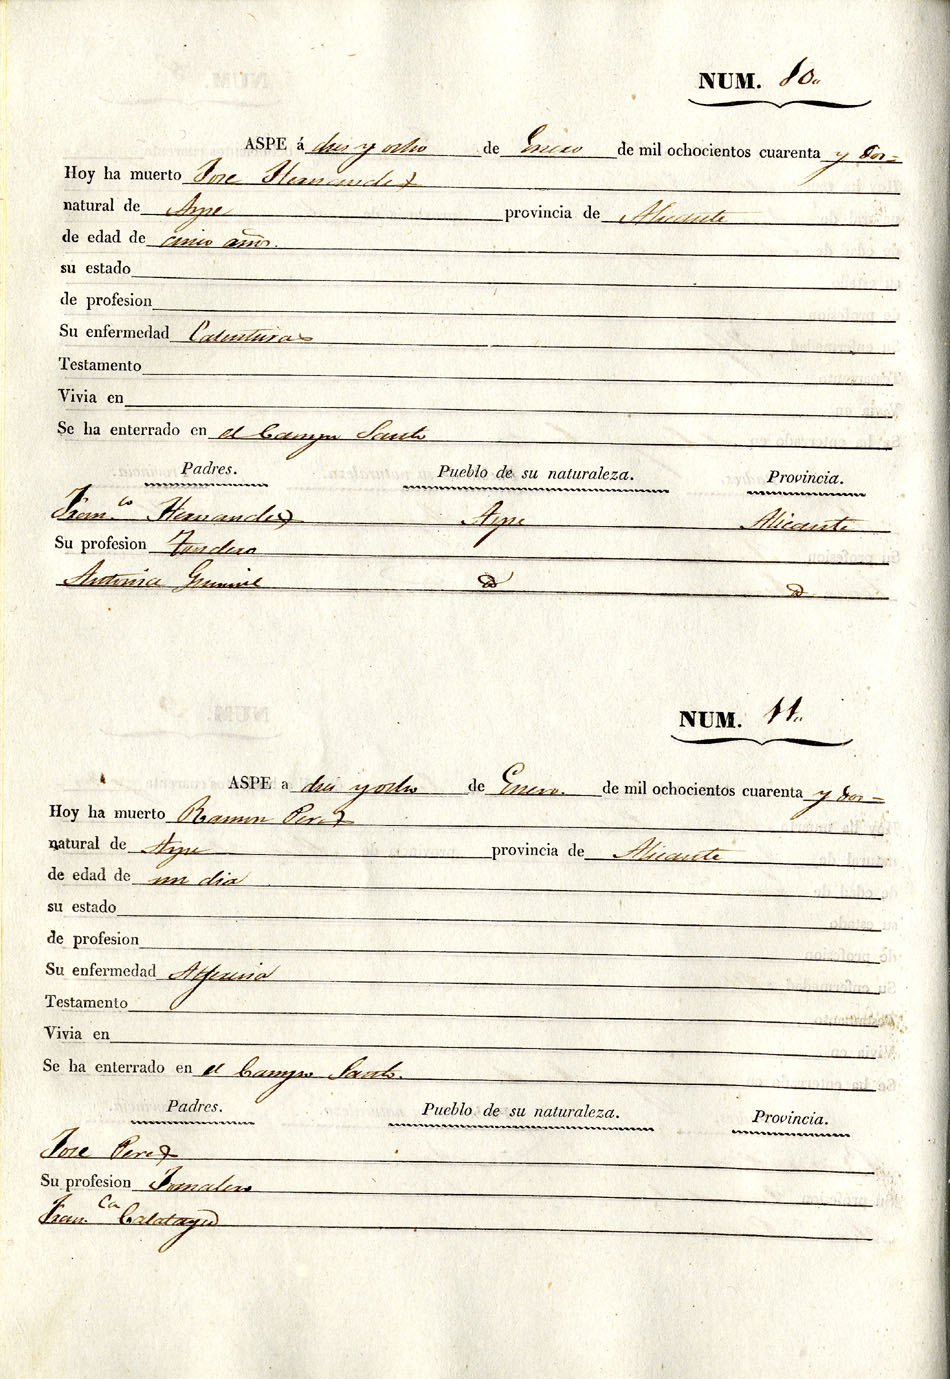 NUM. 10.
ASPE á dies y ocho de Enero de mil ochocientos cuarenta y dos=
Hoy ha muerto Jose Hernandez
natural de Aspe provincia de Alicante
de edad de cinco años.
su estado
de profesion
Su enfermedad Calenturas
Testamento
Vivia en
Se ha enterrado en el Campo Santo
Padres. Pueblo de su naturaleza. Provincia.
Fran.co Hernandez Aspe Alicante
Su profesion
Antonia
NUM. 11.
ASPE a dies y ocho de Enero. de mil ochocientos cuarenta y dos=
Hoy ha muerto Ramon Perez
natural de Aspe provincia de Alicante
de edad de un dia
su estado
de profesion
Su enfermedad Alferecia
Testamento
Vivia en
Se ha enterrado en el Campo Santo.
Padres. Pueblo de su naturaleza. Provincia.
Jose Perez
Su profesion Jornalero
Fran.ca Calatayud